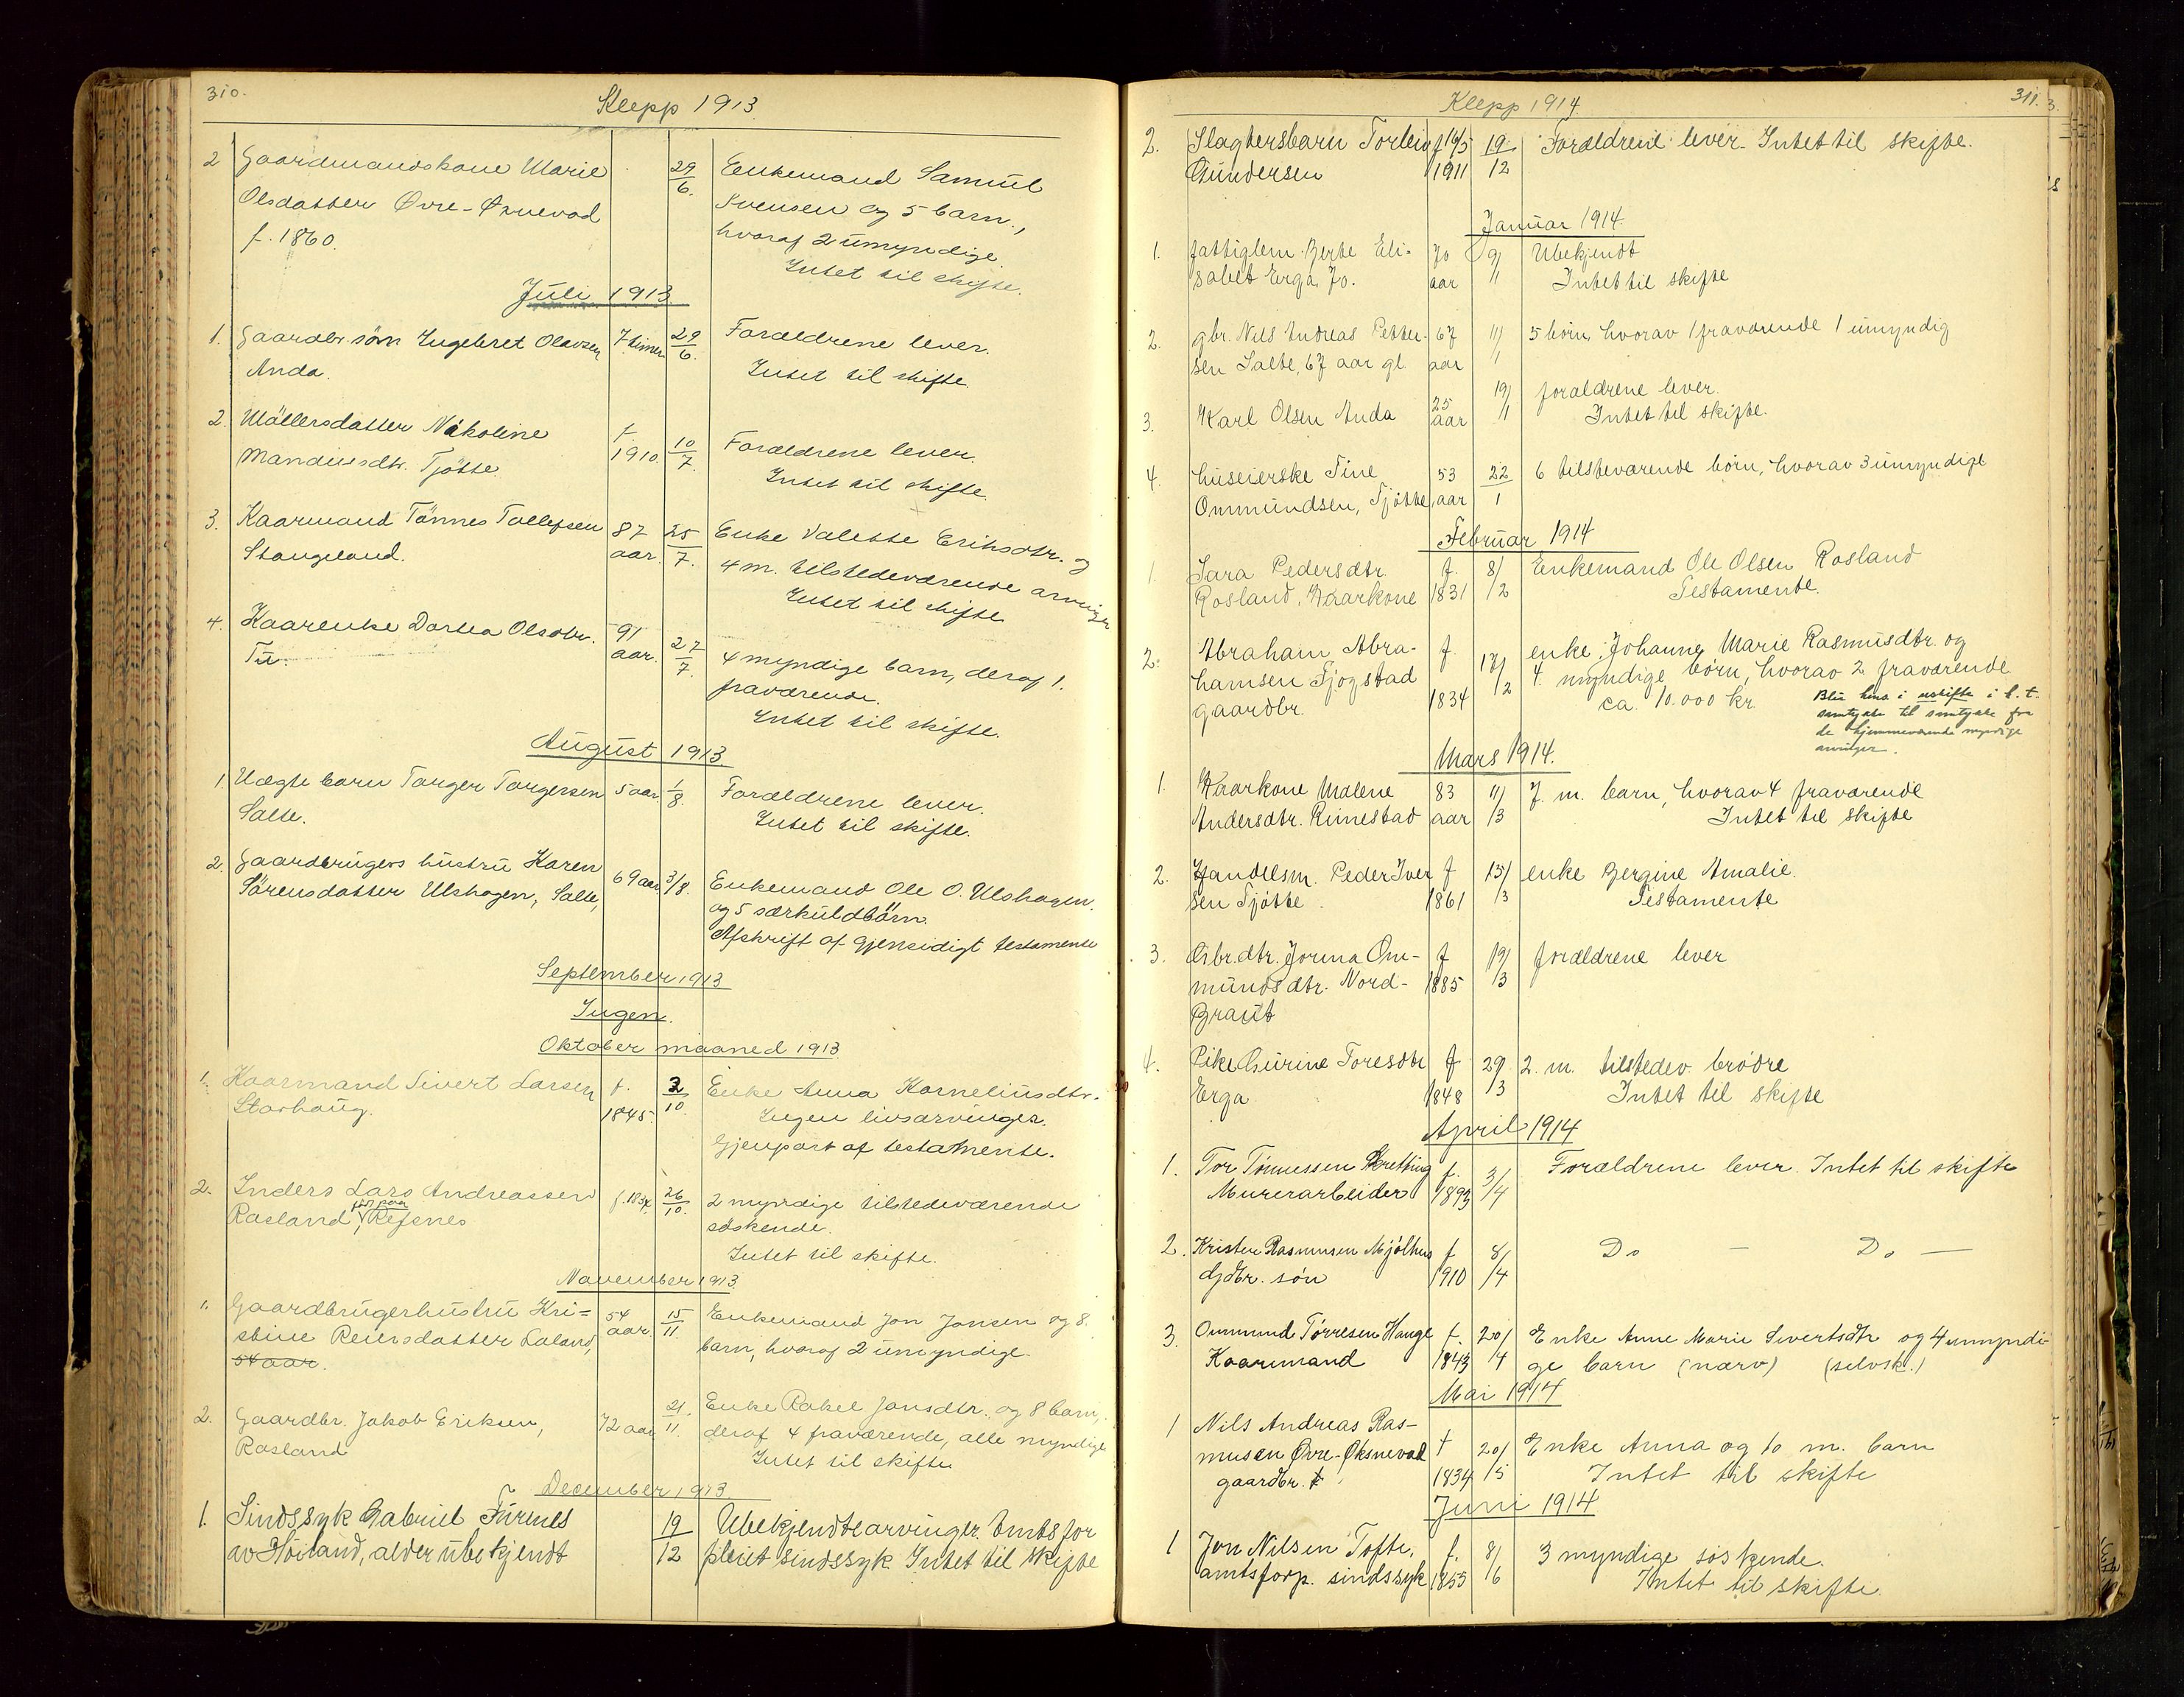 310.
Klepp 1913.
2 Gaardmandskone Marie 29/6. Enkemand Samuel
Olsdatter Øvre-Øxnevad Svensen og 5 barn,
f. 1860. hvoraf 2 umyndige.
Intet til skifte.
Juli 1913
1. Gaardbr. søn Engebret Olavsen 7 timer 29/6. Forældrene lever.
Anda. Intet til skifte.
2. Møllersdatter Nikoline f. 1910. 10/7. Forældrene lever.
Mandiusdtr. Tjøtte. Intet til skifte.
3. Kaarmand Tønnes Tollefsen 87 aar. 25/7. Enke Valette Eriksdtr. og
Stangeland. 4 m. tilstedeværende arvinger
Intet til skifte
4. Kaarenke Dortea Olsdtr. 91 aar. 27/7. 4 myndige barn, deraf 1.
Tu. fraværende.
Intet til skifte.
August 1913.
1. Uægte barn Torger Torgersen 5 aar 1/8. Forældrene lever.
Salte. Intet til skifte.
2. Gaardbrugers hustru Karen 69 aar 3/8. Enkemand Ole O. Ulshagen.
Sørensdatter Ulshagen, Salte, og 5 særkuldbørn.
Afskrift af gjensidigt testamente
September 1913
Ingen.
Oktober maaned 1913
1. Kaarmand Sivert Larsen f. 1845. 3/10. Enke Anna Korneliusdtr.
Storhaug. Ingen livsarvinger.
Gjenpart af testamente.
2. Inders Lars Andreassen 26/10. 2 myndige tilstedeværende
Rosland, Refsnes søskende.
Intet til skifte.
November 1913.
1. Gaardbrugerhustru Kri= 54 aar. 15/11. Enkemand Jon Jonsen og 8
stine Reiersdatter Laland, barn, hvoraf 2 umyndige.
54 aar.
2. Gaardbr. Jakob Eriksen, 72 aar 21./11. Enke Rakel Jonsdtr. og 8 barn,
Rosland deraf 4 fraværende, alle myndige
Intet til skifte
December 1913.
1. Sindssyk Gabriel Furenes 19/12 Ubekjendte arvinger. Amtsfor
av Høiland, alder ubekjendt pleiet sindssyk. Intet til skifte
311.
Klepp 1914.
2. Slagtersbarn Torleiv f 16/5 1911 19/12 Forældrene lever. Intet til skifte.
Gundersen
Januar 1914
1. fattiglem Berte Eli- 70 aar 9/1 Ubekjendt
sabet Erga, 70. Intet til skifte
2. gbr. Nils Andreas Petter- 67 aar 11/1 5 børn, hvorav 1 fraværende 1 umyndig
sen Salte, 67 aar gl.
3. Karl Olsen Anda 25 aar 19/1 forældrene lever.
Intet til skifte.
4. huseierske Tine 53 aar 22/1 6 tilsteværende børn, hvorav 3 umyndige
Ommundsen, Tjøtte,
Februar 1914
1. Sara Pedersdtr. f. 1831 8/2 Enkemand Ole Olsen Rosland
Rosland, Kaarkone Testamente.
2. Abraham Abra- f. 1834 17/2 enke: Johanne Marie Rasmusdtr. og
hamsen Tjøgstad 4 myndige børn, hvorav 2 fraværende
gaardbr. ca. 10.000 kr.
i uskifte i h. t.
samtykke til samtykke fra
de hjemmeværende myndige
arvinger.
Mars 1914.
1. Kaarkone Malene 83 aar 11/3 7. m. barn, hvorav 4 fraværende
Andersdtr. Rimestad Intet til skifte
2. Handelsm. Peder Iver f 1861 15/3 enke Bergine Amalie.
sen Tjøtte. Testamente
3. Gbr. dtr. Jorina Om- f 1885 19/3 forældrene lever
mundsdtr. Nord-
Braut
4. Pike Gurine Toresdtr f 1848 29/3 2. m. tilstedev. brødre
Erga Intet til skifte
April 1914
1. Tor Tønnessen Skretting f. 1893 3/4 Forældrene lever. Intet til skifte
Murerarbeider
2. Kristen Rasmussen Mjølhus f 1910 8/4 Do — Do —
Gdbr. søn
3. Ommund Tørresen Hauge f. 1843 20/4 Enke Anne Marie Sivertsdtr og 4 umyndi
Kaarmand ge barn (nærv) (selvsk.)
Mai 1914
1 Nils Andreas Ras- f 1834 20/5 Enke Anna og 10 m. barn
musen Øvre-Øksnevad Intet til skifte
gaardbr. f
Juni 1914
1 Jon Nilsen Tofte, f. 1855 8/6 3 myndige søskende.
amtsforp. sindssyk Intet til skifte.